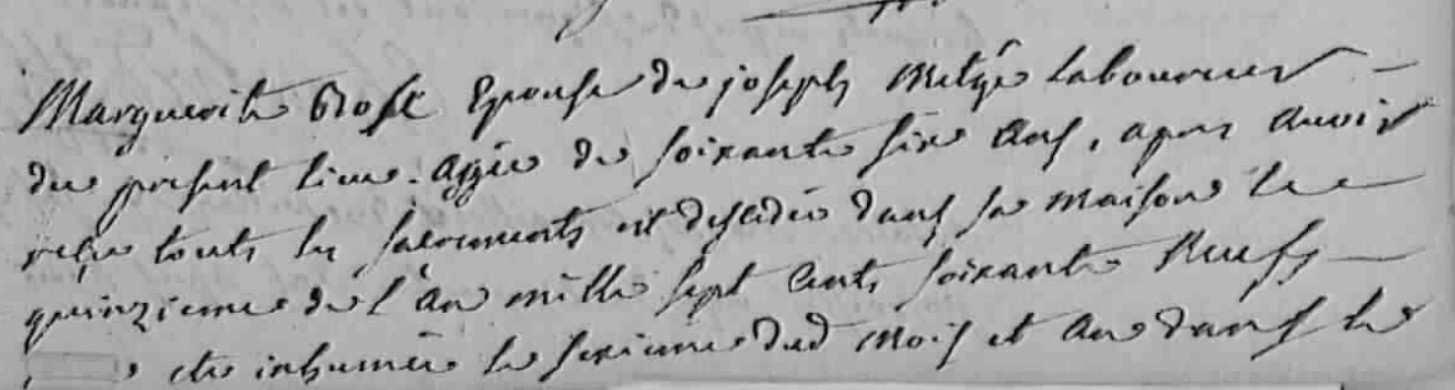 Marguerite Epouse de joseph laboureur
du present lieu. aggée de soixante six ans, apres avoir
reçu touts les sacrements est desedée dans sa maison le
quinzieme de l'an mille sept cents soixante neufs
ete inhumée le sexieme dud mois et an dans le